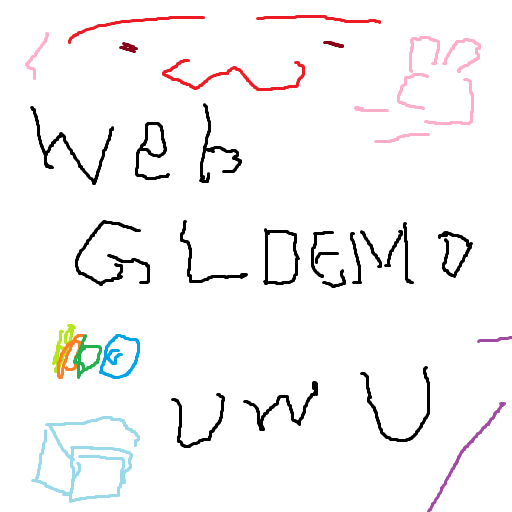 Web
GL DEMO
UwU